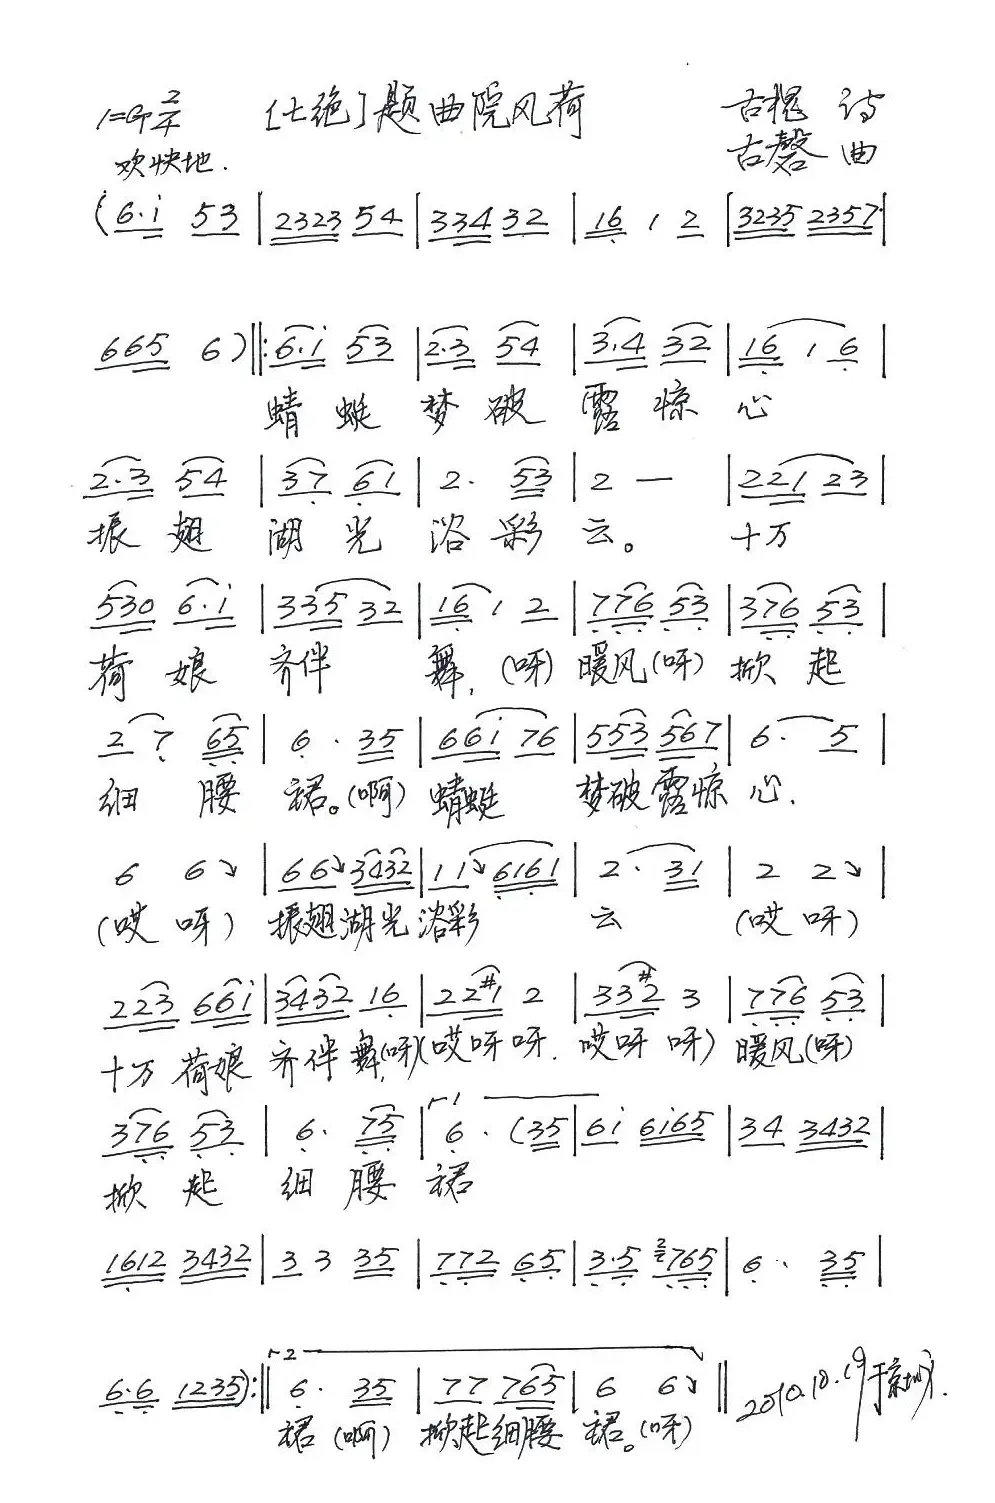 1=G 2/4 [七绝]题曲院风荷 古槐 诗
欢快地. 古磬 曲
(6·i 53 | 2323 54 | 334 32 | 16 1 2 | 3235 2357 |
665 6) ‖: 6·i 53 | 2·3 54 | 3·4 32 | 16 1 6 |
蜻 蜓 梦 破 露 惊 心
2·3 54 | 37 61 | 2· 53 | 2 — | 221 23 |
振 翅 湖 光 浴 彩 云。 十万
530 6·i | 335 32 | 16 1 2 | 776 53 | 376 53 |
荷 娘 齐伴 舞, (呀) 暖风(呀) 掀 起
2 7 65 | 6· 35 | 66i 76 | 553 567 | 6· 5 |
细 腰 裙。(啊) 蜻蜓 梦破露惊 心.
6 6↘ | 66↘ 3432 | 11↘ 6161 | 2· 31 | 2 2↘ |
(哎 呀) 振翅湖光浴彩 云 (哎 呀)
223 66i | 3432 16 | 22#1 2 | 33#2 3 | 776 53 |
十万 荷娘 齐伴 舞,(呀)(哎呀呀. 哎呀呀) 暖风(呀)
376 53 | 6· 75 | 1 6· (35 | 6i 6i65 | 34 3432 |
掀 起 细 腰 裙
1612 3432 | 3 3 35 | 772 65 | 3·5 2765 | 6· 35 |
6·6 1235) :‖ 2 6· 35 | 77 765 | 6 6↘ ‖ 2010.10.19于京城.
裙 (啊) 掀起细腰 裙。(呀)